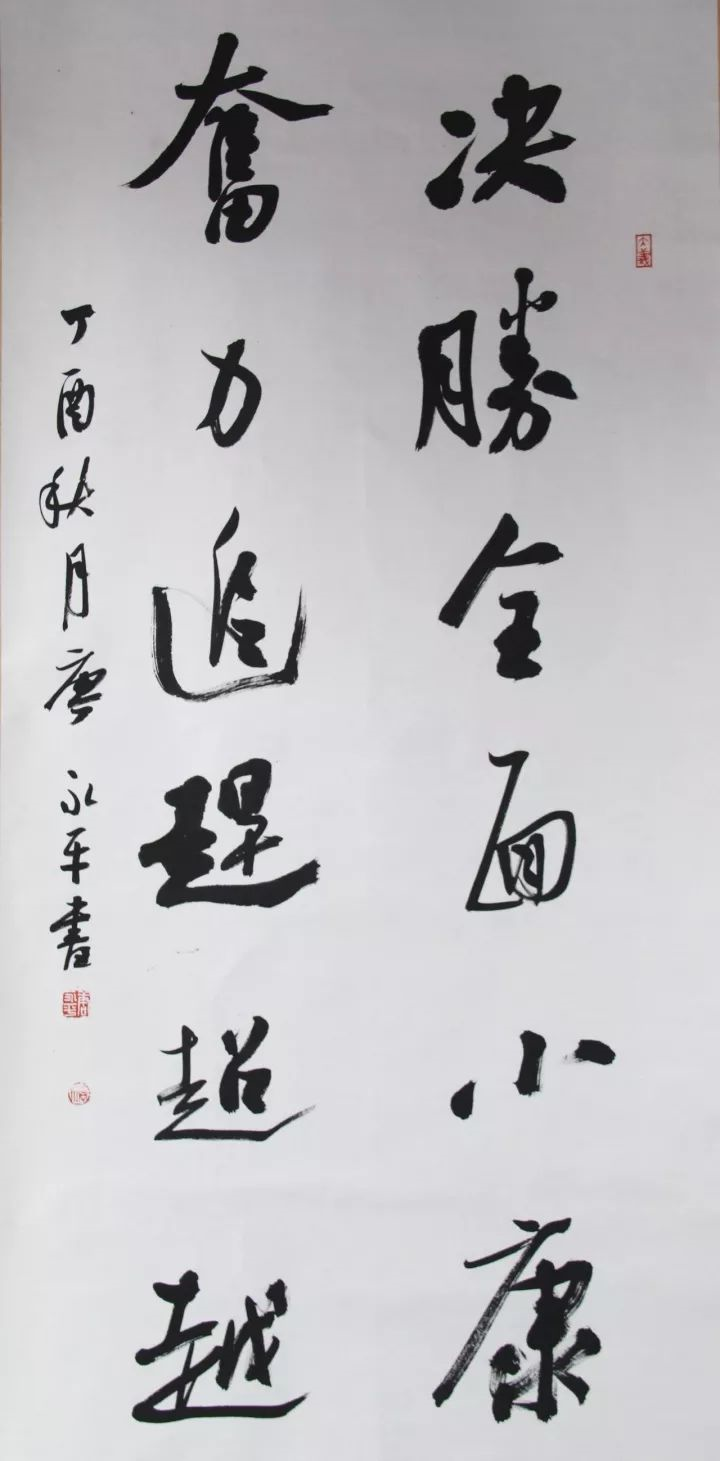 决勝全面小康
奮力追趕超越
丁酉秋月唐永平書